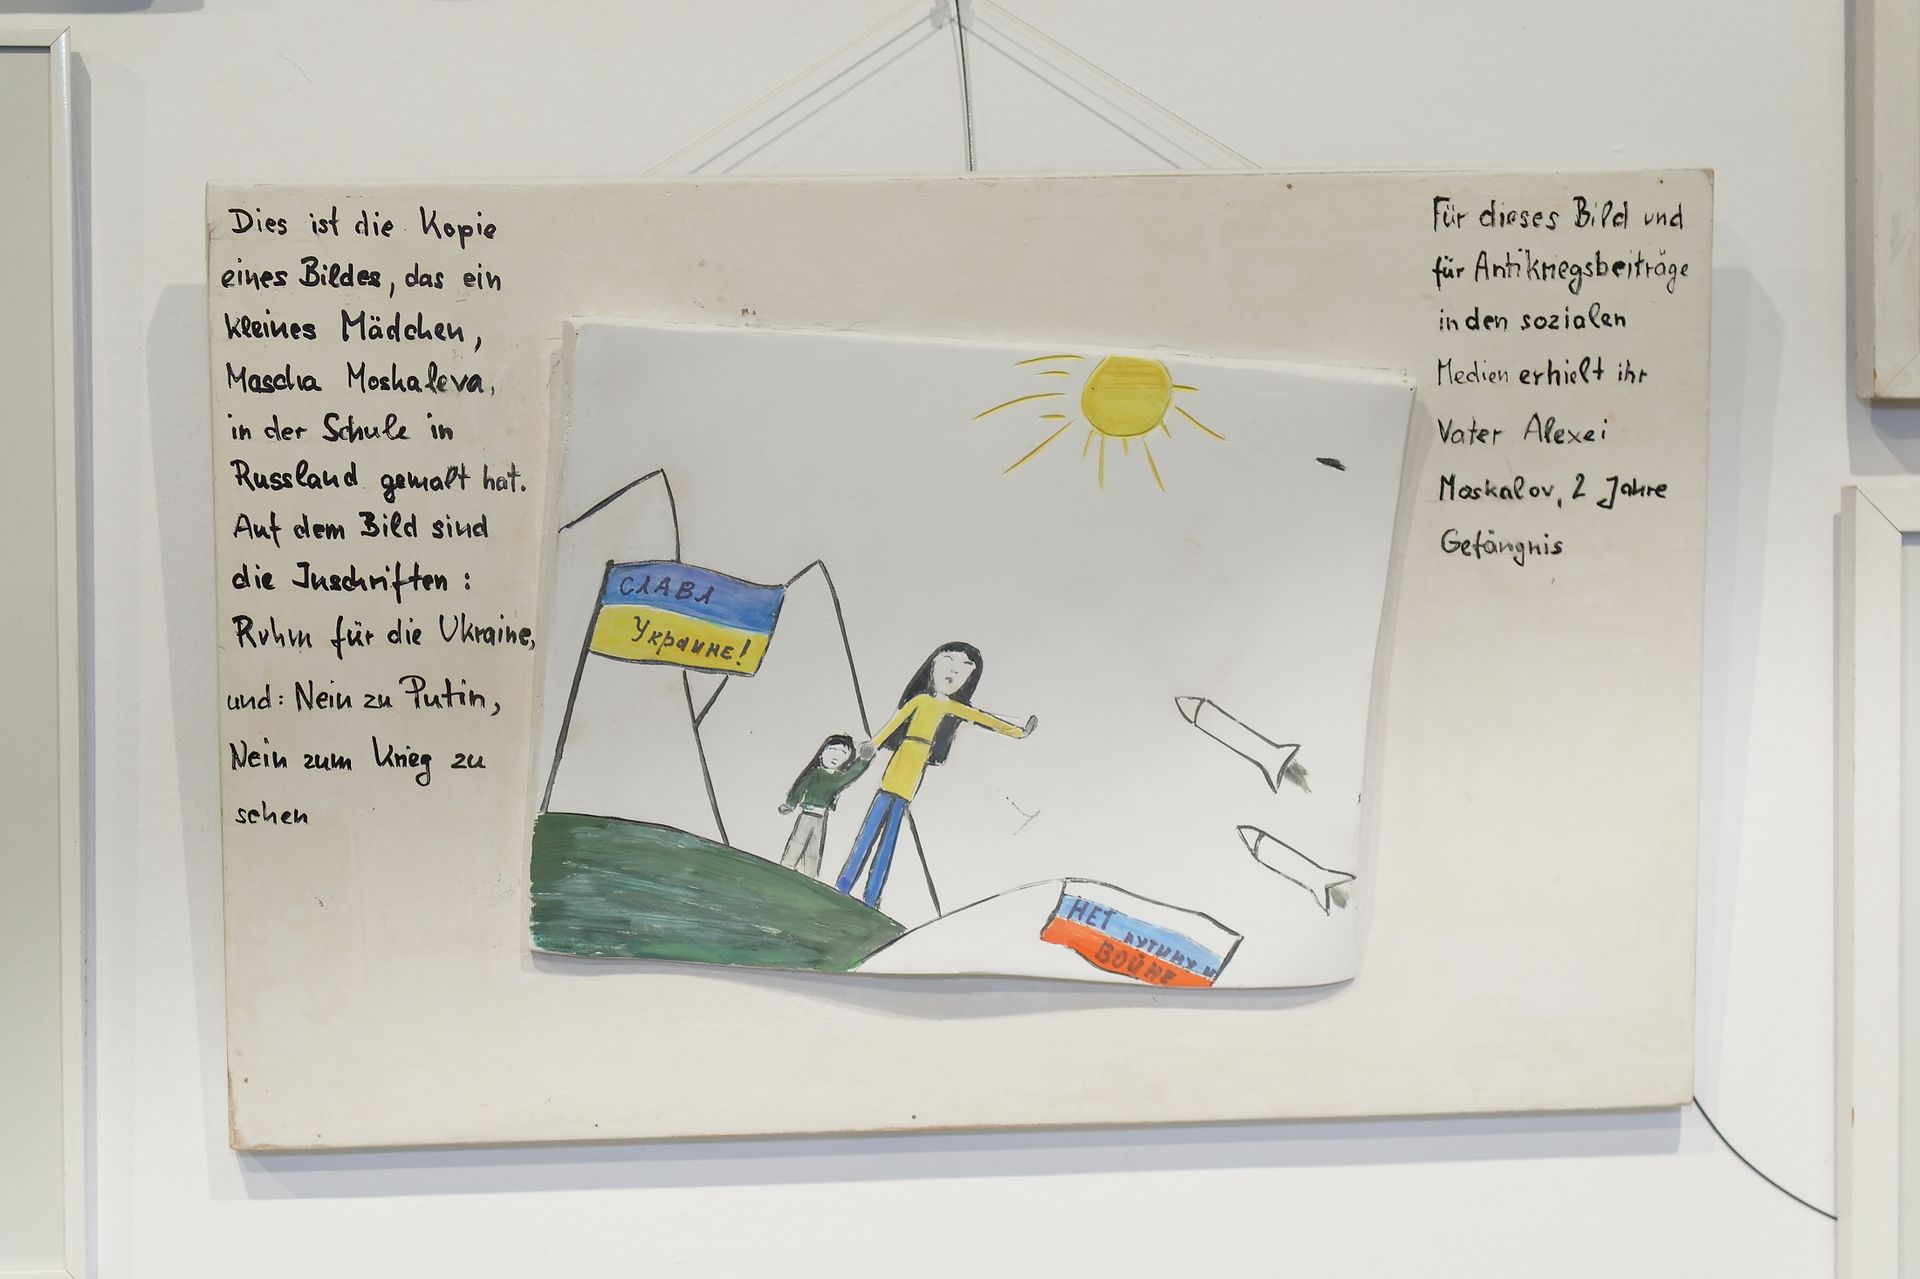 Dies ist die Kopie
eines Bildes, das ein
kleines Mädchen,
Mascha Moskaleva,
in der Schule in
Russland gemalt hat.
Auf dem Bild sind
die Inschriften:
Ruhm für die Ukraine,
und: Nein zu Putin,
Nein zum Krieg zu
sehen
СЛАВА
Украине!
НЕТ
ПУТИНУ И
ВОЙНЕ
Für dieses Bild und
für Antikriegsbeiträge
in den sozialen
Medien erhielt ihr
Vater Alexei
Moskalov, 2 Jahre
Gefängnis